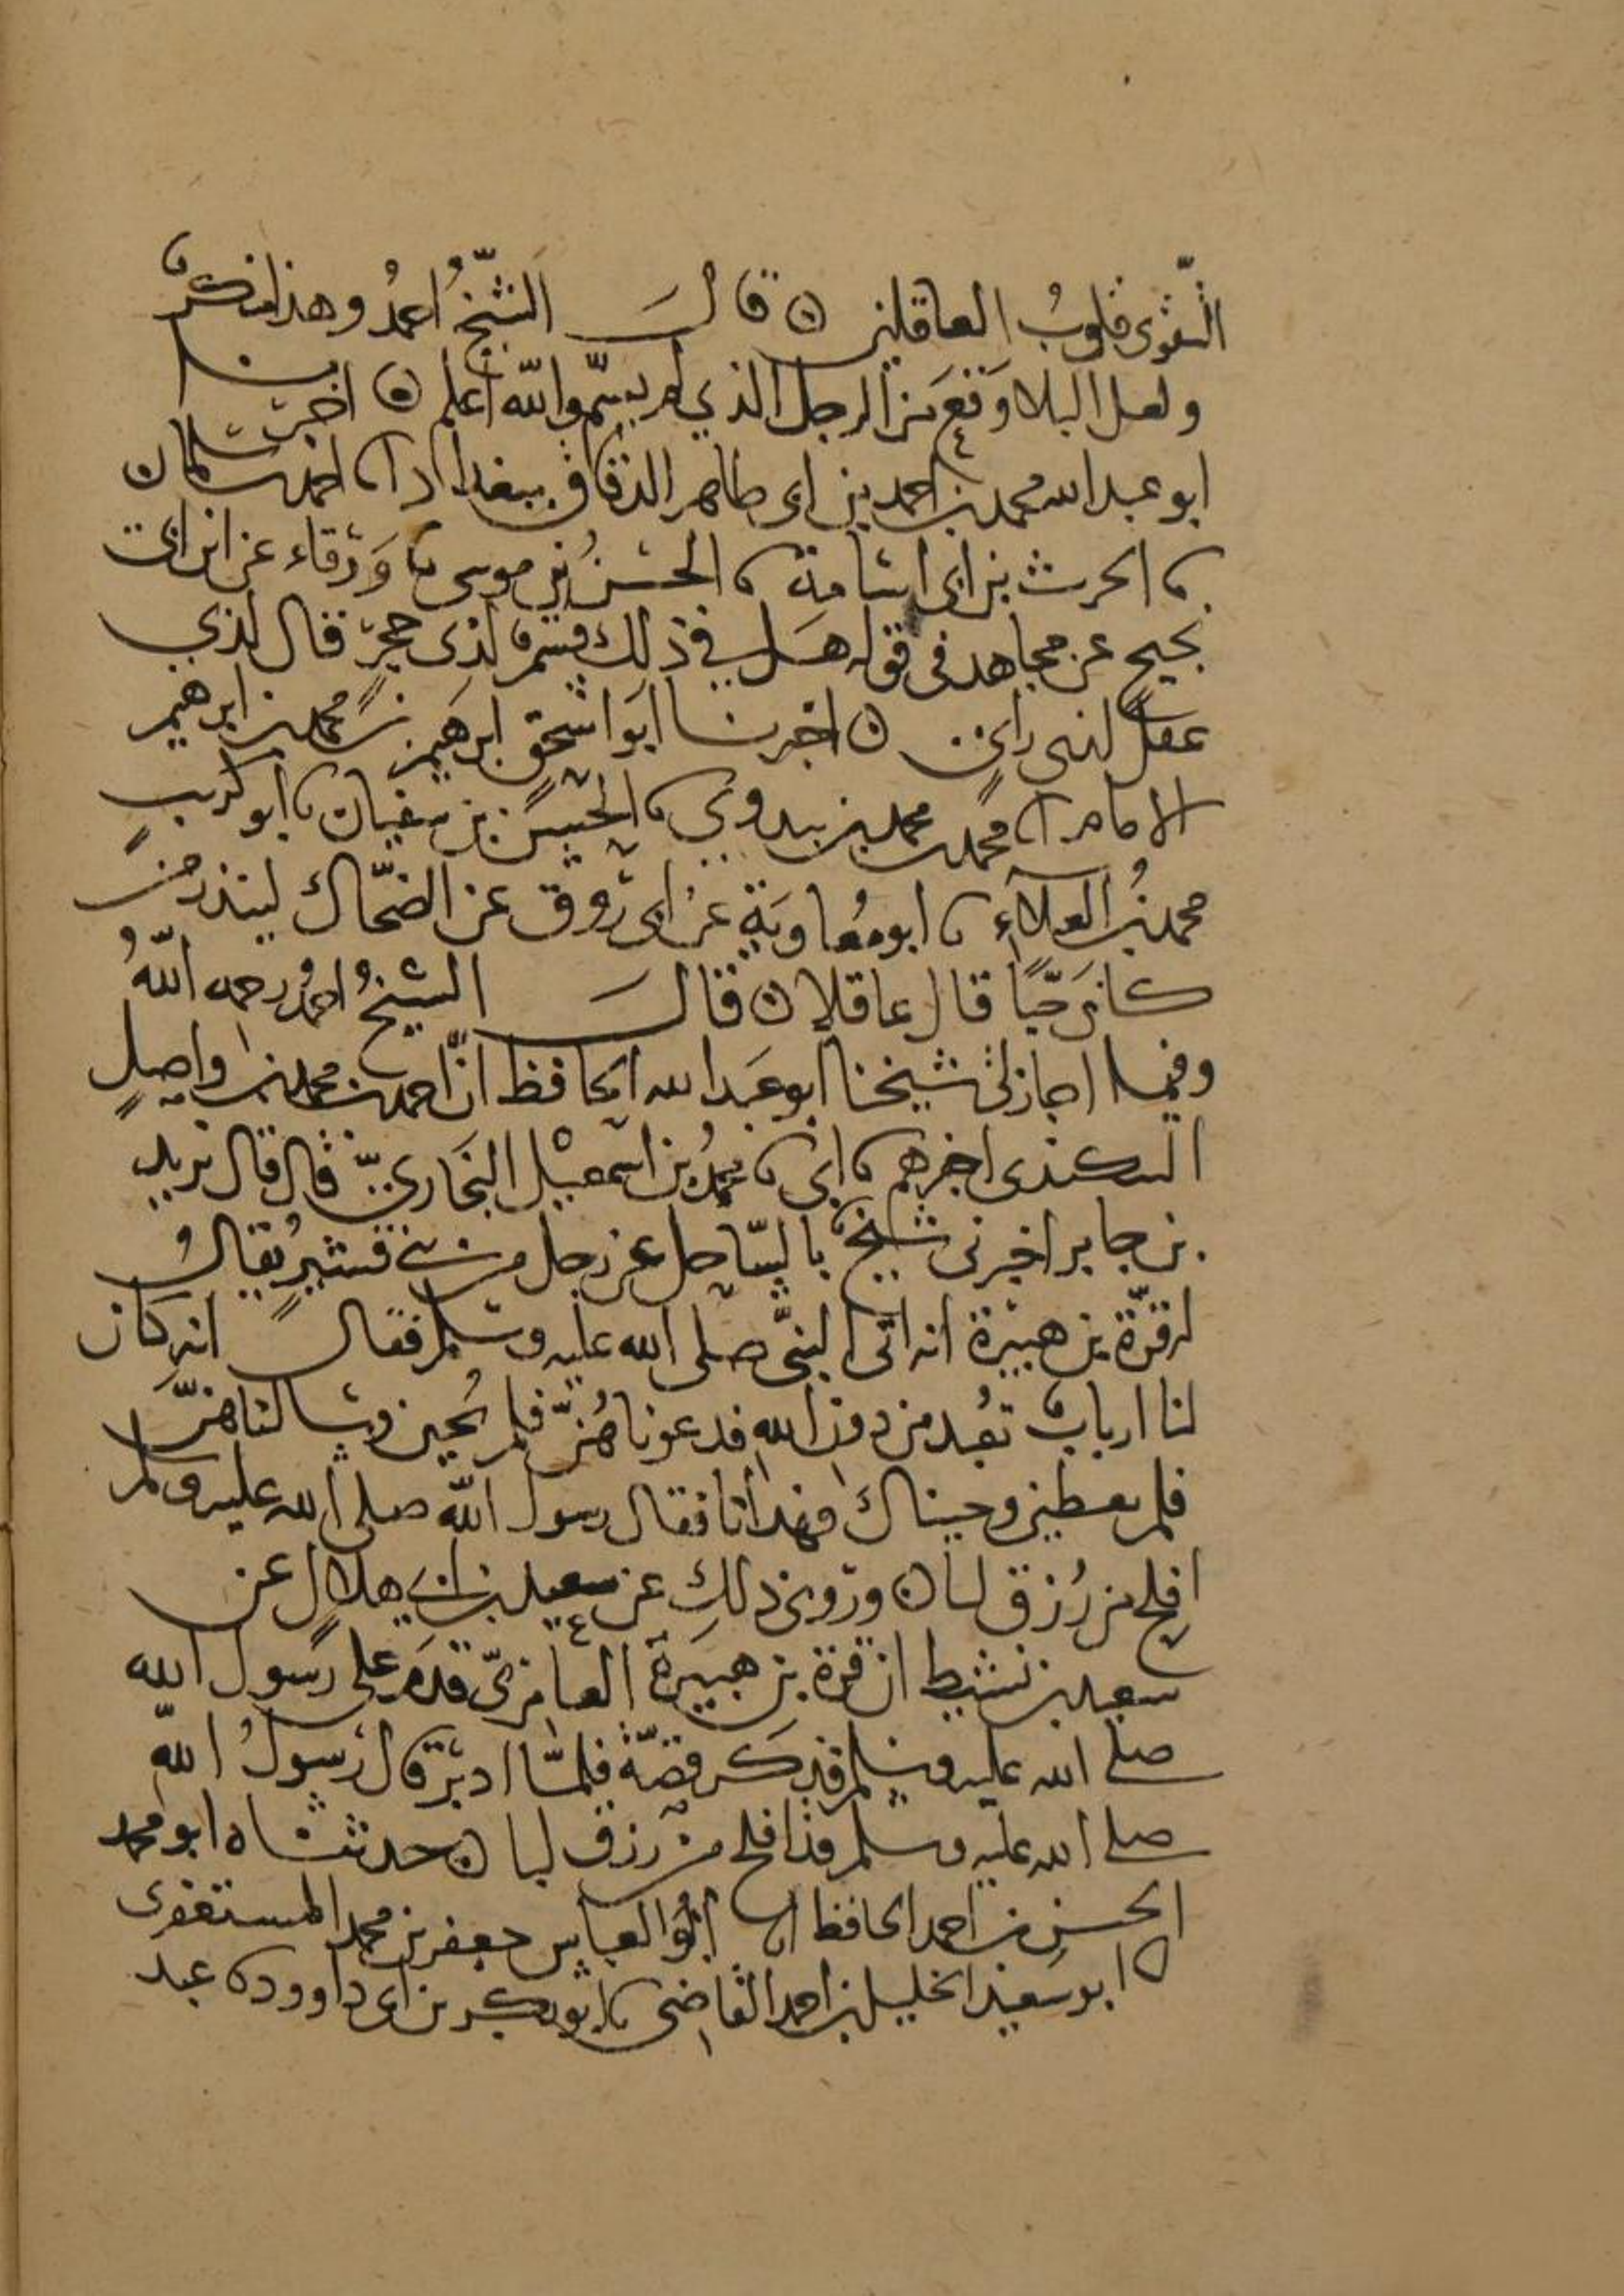 التقوى قلوب العاقلين ۞ قال الشيخ احمد وهذا منكر
ولعل البلا وقع من الرجل الذي لم يسم والله اعلم ۞ اخبرنا
ابو عبد الله محمد بن احمد بن ابي طاهر الدقاق ببغداد انا احمد بن سلمان
نا الحرث بن ابي اسامة نا الحسن بن موسى نا ورقاء عن ابن ابي
نجيح عن مجاهد في قوله هل في ذلك قسم لذي حجر قال لذي
عقل لذي راي ۞ اخبرنا ابو اسحق ابرهيم بن محمد بن ابرهيم
الامام انا محمد بن محمد بن بندوي نا الحسين بن سفيان نا ابو كريب
محمد بن العلاء نا ابو معاوية عن ابي روق عن الضحاك لينذر من
كان حيا قال عاقلا ۞ قال الشيخ احمد رحمه الله
وفيما اجاز لي شيخنا ابو عبد الله الحافظ ان احمد بن محمد بن واصل
البيكندي اخبرهم نا ابي نا محمد بن اسمعيل البخاري قال قال يزيد
بن جابر اخبرني شيخ بالساحل عن رجل من بني قشير يقال
له قرة بن هبيرة انه اتى النبي صلى الله عليه وسلم فقال انه كان
لنا ارباب تعبد من دون الله فدعوناهن فلم يجبن وسالناهن
فلم يعطين وجيناك فهدانا فقال رسول الله صلى الله عليه وسلم
افلح من رزق لبا ۞ وروي ذلك عن سعيد بن ابي هلال عن
سعيد بن نشيط ان قرة بن هبيرة العامري قدم على رسول الله
صلى الله عليه وسلم فذكر قصة فلما ادبر قال رسول الله
صلى الله عليه وسلم قد افلح من رزق لبا ۞ حدثناه ابو محمد
الحسن بن احمد الحافظ انا ابو العباس جعفر بن محمد المستغفري
نا ابو سعيد الخليل بن احمد القاضي نا ابو بكر بن ابي داوود نا عبد